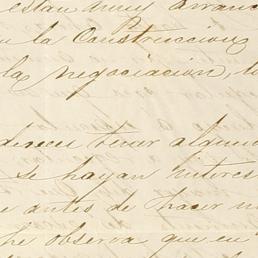 estan muy avanz
en la Construccion
la negociación, lo
deseos tener algun
se hayan interes
e antes de hacer
he observa que en